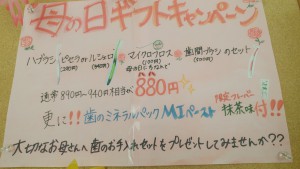 母の日ギフトキャンペーン
ハブラシ(ピセラorルシェロ) マイクロフロス 歯間ブラシのセット
母の日に
通常890円〜940円相当が 880円
更に!! 歯のミネラルパック MIペースト 限定フレーバー 抹茶味付!!
大切なお母さんへ歯のお手入れセットをプレゼントしてみませんか??